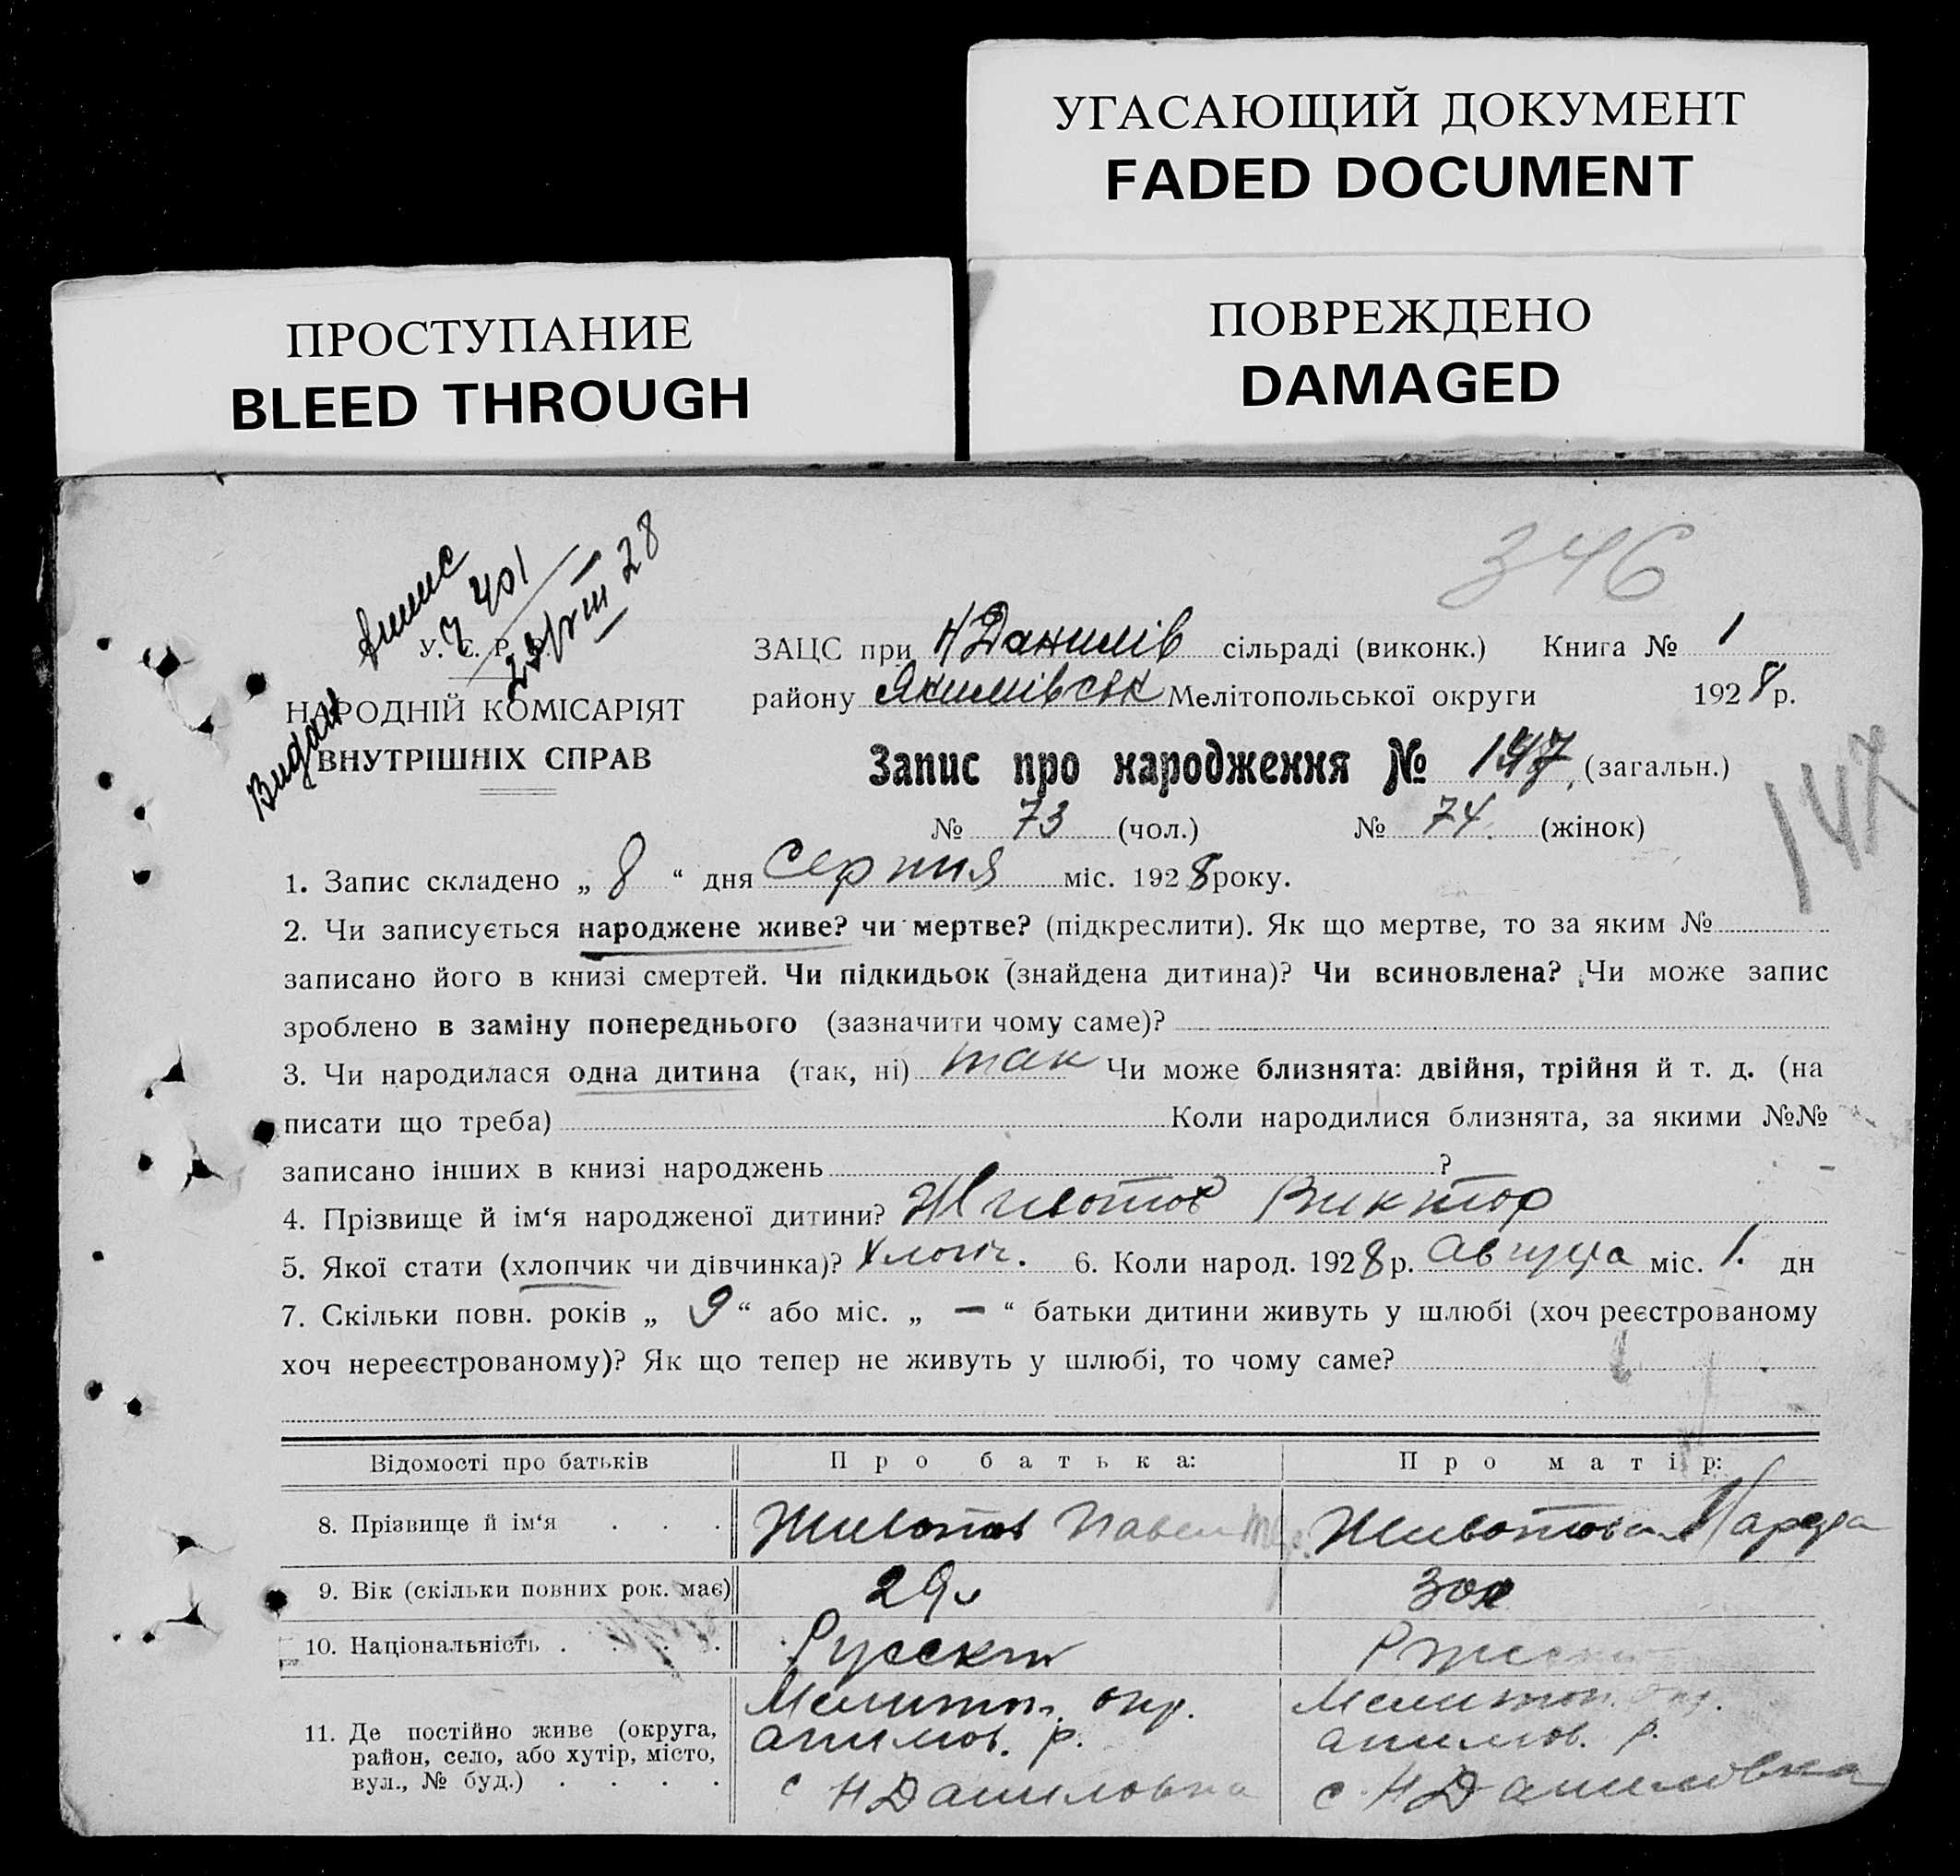 УГАСАЮЩИЙ ДОКУМЕНТ
FADED DOCUMENT
ПРОСТУПАНИЕ
BLEED THROUGH
ПОВРЕЖДЕНО
DAMAGED
346
Видан
401
28
У. С. Р. Р.
НАРОДНІЙ КОМІСАРІЯТ
ВНУТРІШНІХ СПРАВ
ЗАЦС при Н Данилів сільраді (виконк.) Книга № 1
району Якимівськ Мелітопольської округи 1928 р.
Запис про народження № 147 (загальн.)
147
№ 73 (чол.) № 74 (жінок)
1. Запис складено „ 8 “ дня Серпня міс. 1928 року.
2. Чи записується народжене живе? чи мертве? (підкреслити). Як що мертве, то за яким №
записано його в книзі смертей. Чи підкидьок (знайдена дитина)? Чи всиновлена? Чи може запис
зроблено в заміну попереднього (зазначити чому саме)?
3. Чи народилася одна дитина (так, ні) так Чи може близнята: двійня, трійня й т. д. (на
писати що треба) Коли народилися близнята, за якими №№
записано інших в книзі народжень ?
4. Прізвище й ім‘я народженої дитини? Животов Виктор
5. Якої стати (хлопчик чи дівчинка)? хлопч. 6. Коли народ. 1928 р. Августа міс. 1. дн
7. Скільки повн. років „ 9 “ або міс. „ — “ батьки дитини живуть у шлюбі (хоч реєстрованому
хоч нереєстрованому)? Як що тепер не живуть у шлюбі, то чому саме?
Відомості про батьків Про батька: Про матір:
8. Прізвище й ім‘я . . . Животов Павел Животова
9. Вік (скільки повних рок. має) 29 30
10. Національність . . . . Русский
11. Де постійно живе (округа, район, село, або хутір, місто, вул., № буд.) . . . .
Мелитоп. окр. Мелитоп. окр.
акимов. р. акимов. р.
с Н Даниловка с. Н Даниловка